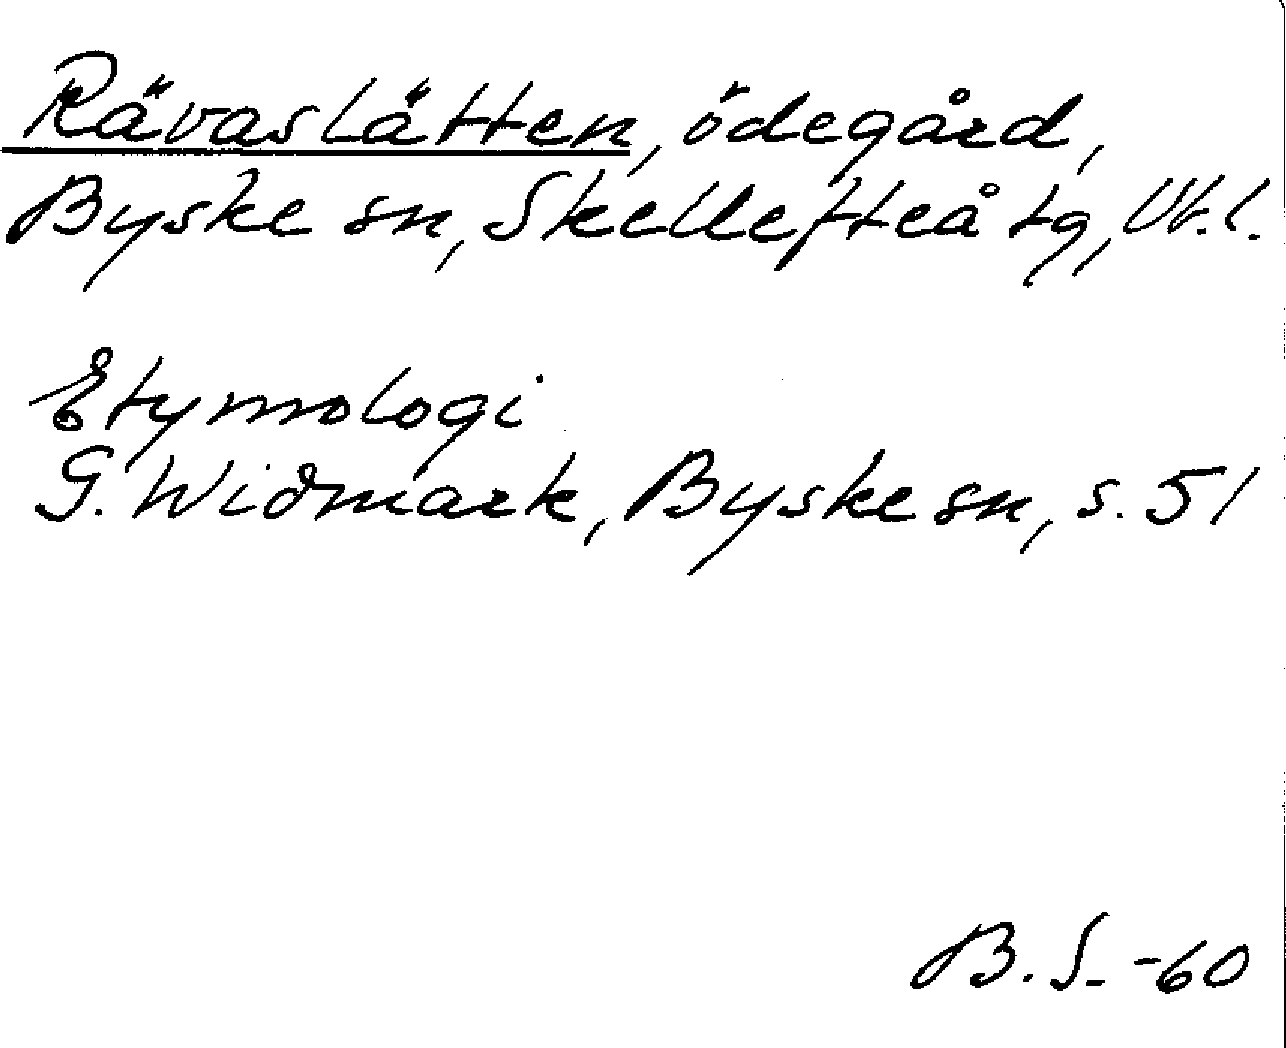 Rävaslätten, ödegård,
Byske sn, Skellefteå tg, Vb.l.
Etymologi
G. Widmark, Byske sn, s. 51
B. S. -60